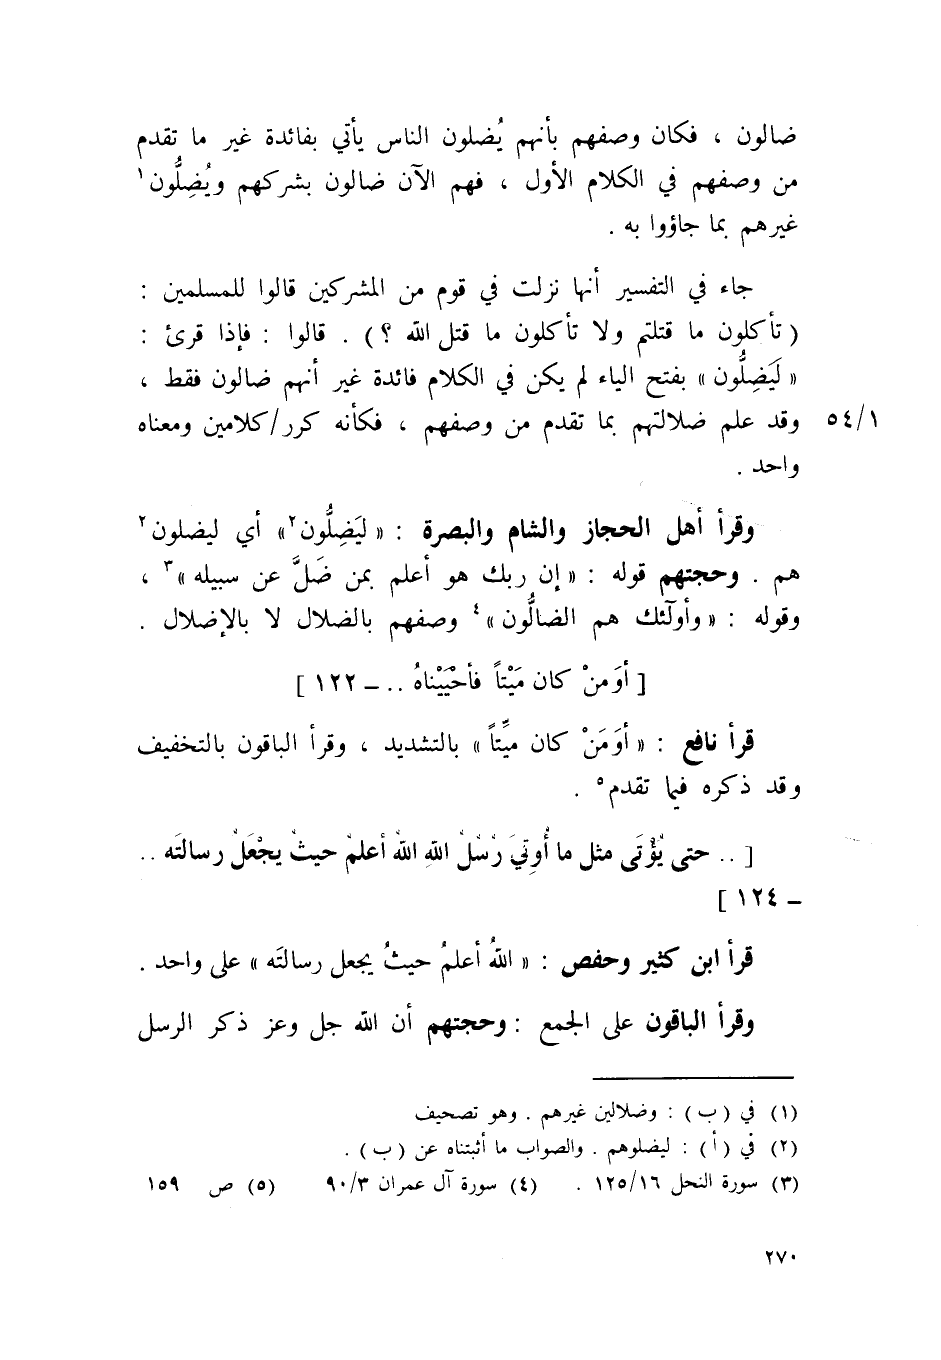 ضالون ، فكان وصفهم بأنهم يُضلون الناس يأتي بفائدة غير ما تقدم
من وصفهم في الكلام الأول ، فهم الآن ضالون بشركهم ويُضِلُّون١
غيرهم بما جاؤوا به .
جاء في التفسير أنها نزلت في قوم من المشركين قالوا للمسلمين :
( تأكلون ما قتلتم ولا تأكلون ما قتل الله ؟ ) . قالوا : فإذا قرئ :
« لَيَضِلُّون » بفتح الياء لم يكن في الكلام فائدة غير أنهم ضالون فقط ،
وقد علم ضلالتهم بما تقدم من وصفهم ، فكأنه كرر/كلامين ومعناه ٥٤/١
واحد .
وقرأ أهل الحجاز والشام والبصرة : « ليَضِلُّون٢» أي ليضلون٢
هم . وحجتهم قوله : « إن ربك هو أعلم بمن ضَلَّ عن سبيله »٣ ،
وقوله : « وأولٓئك هم الضالُّون »٤ وصفهم بالضلال لا بالإضلال .
[ أوَمنْ كان مَيْتاً فأحْيَيْناهُ .. ــ ١٢٢ ]
قرأ نافع : « أوَمَنْ كان ميِّتاً » بالتشديد ، وقرأ الباقون بالتخفيف
وقد ذكره فيما تقدم٥ .
[ .. حتى يُؤْتَى مثل ما أُوتيَ رُسُلُ اللهِ اللهُ أعلمُ حيثُ يجْعَلُ رسالتَه ..
ــ ١٢٤ ]
قرأ ابن كثير وحفص : « اللهُ أعلمُ حيثُ يجعل رسالتَه » على واحد .
وقرأ الباقون على الجمع : وحجتهم أن الله جل وعز ذكر الرسل
(١) في ( ب ) : وضلالين غيرهم . وهو تصحيف
(٢) في ( أ ) : ليضلوهم . والصواب ما أثبتناه عن ( ب ) .
(٣) سورة النحل ١٢٥/١٦ . (٤) سورة آل عمران ٩٠/٣ (٥) ص ١٥٩
٢٧٠